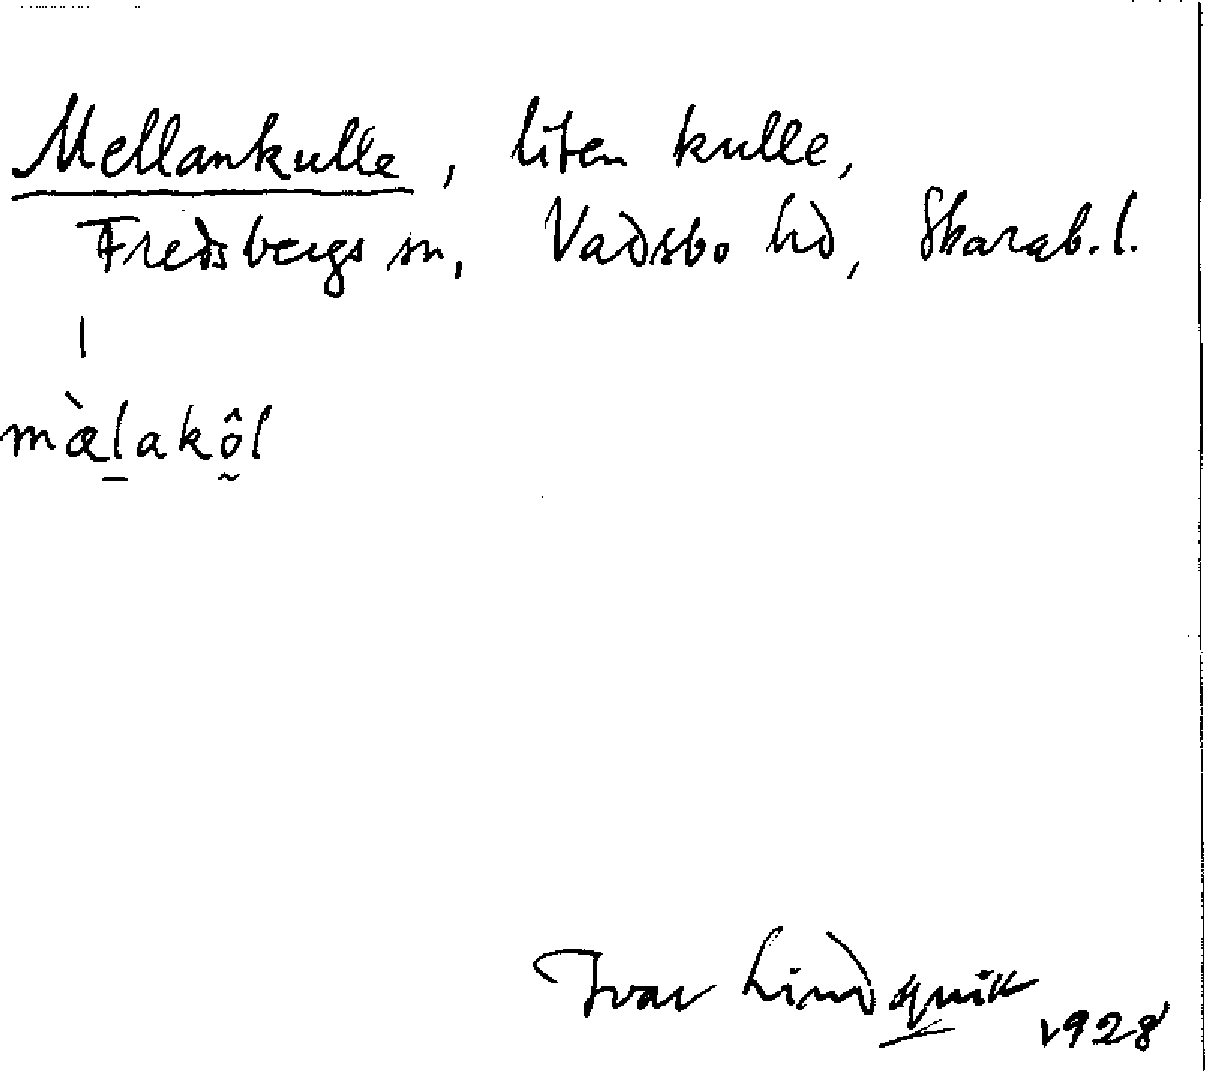 Mellankulle, liten kulle,
Fredsbergs sn, Vadsbo hd, Skarab. l.
mæ̀l̠akô̰l
Ivar Lindquist
1928